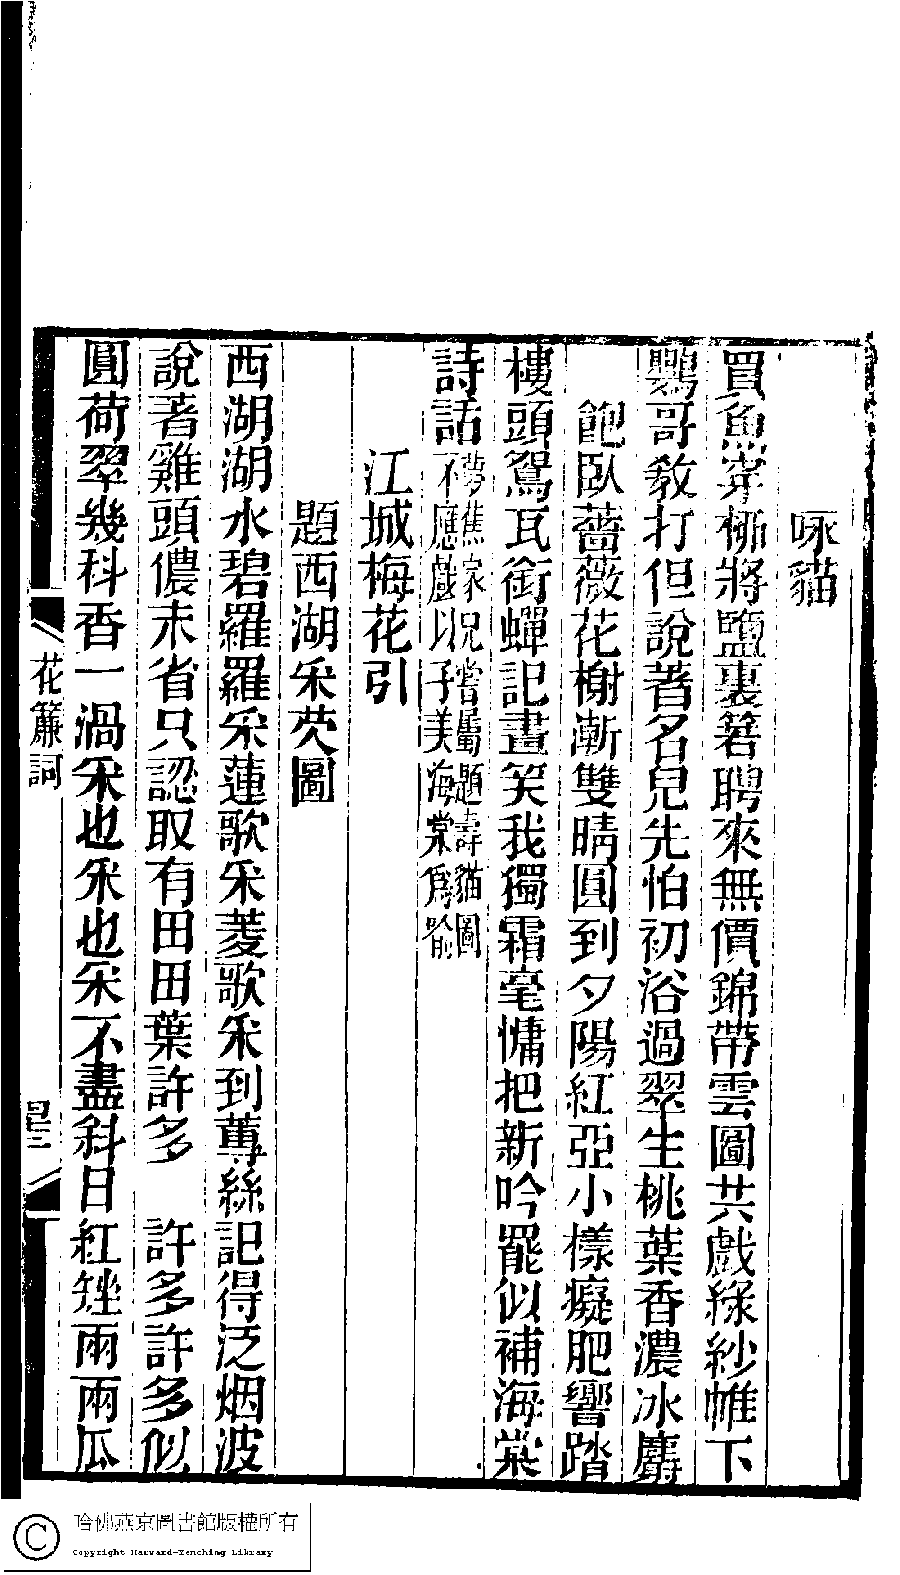 咏貓
買魚穿桺將鹽裹箬聘來無價錦帶雲圖共戲綠紗帷下
鸚哥教打但說著名兒先怕初浴過翠生桃葉香濃冰麝
飽臥薔薇花榭漸雙晴圓到夕陽紅亞小樣癡肥響踏
樓頭鴛瓦銜蟬記畫笑我獨霜毫慵把新吟罷似補海棠
詩話夢蕉家兄嘗屬題壽貓圖
不應戲以子美海棠爲喻
江城梅花引
題西湖采芡圖
西湖湖水碧羅羅采蓮歌采菱歌采到蓴絲記得泛烟波
說著雞頭儂未省只認取有田田葉許多　許多許多似
圓荷翠幾科香一渦采也采也采不盡斜日紅矬雨雨瓜
花簾詞
哈佛燕京圖書館版權所有
Copyright Harvard-Yenching Library